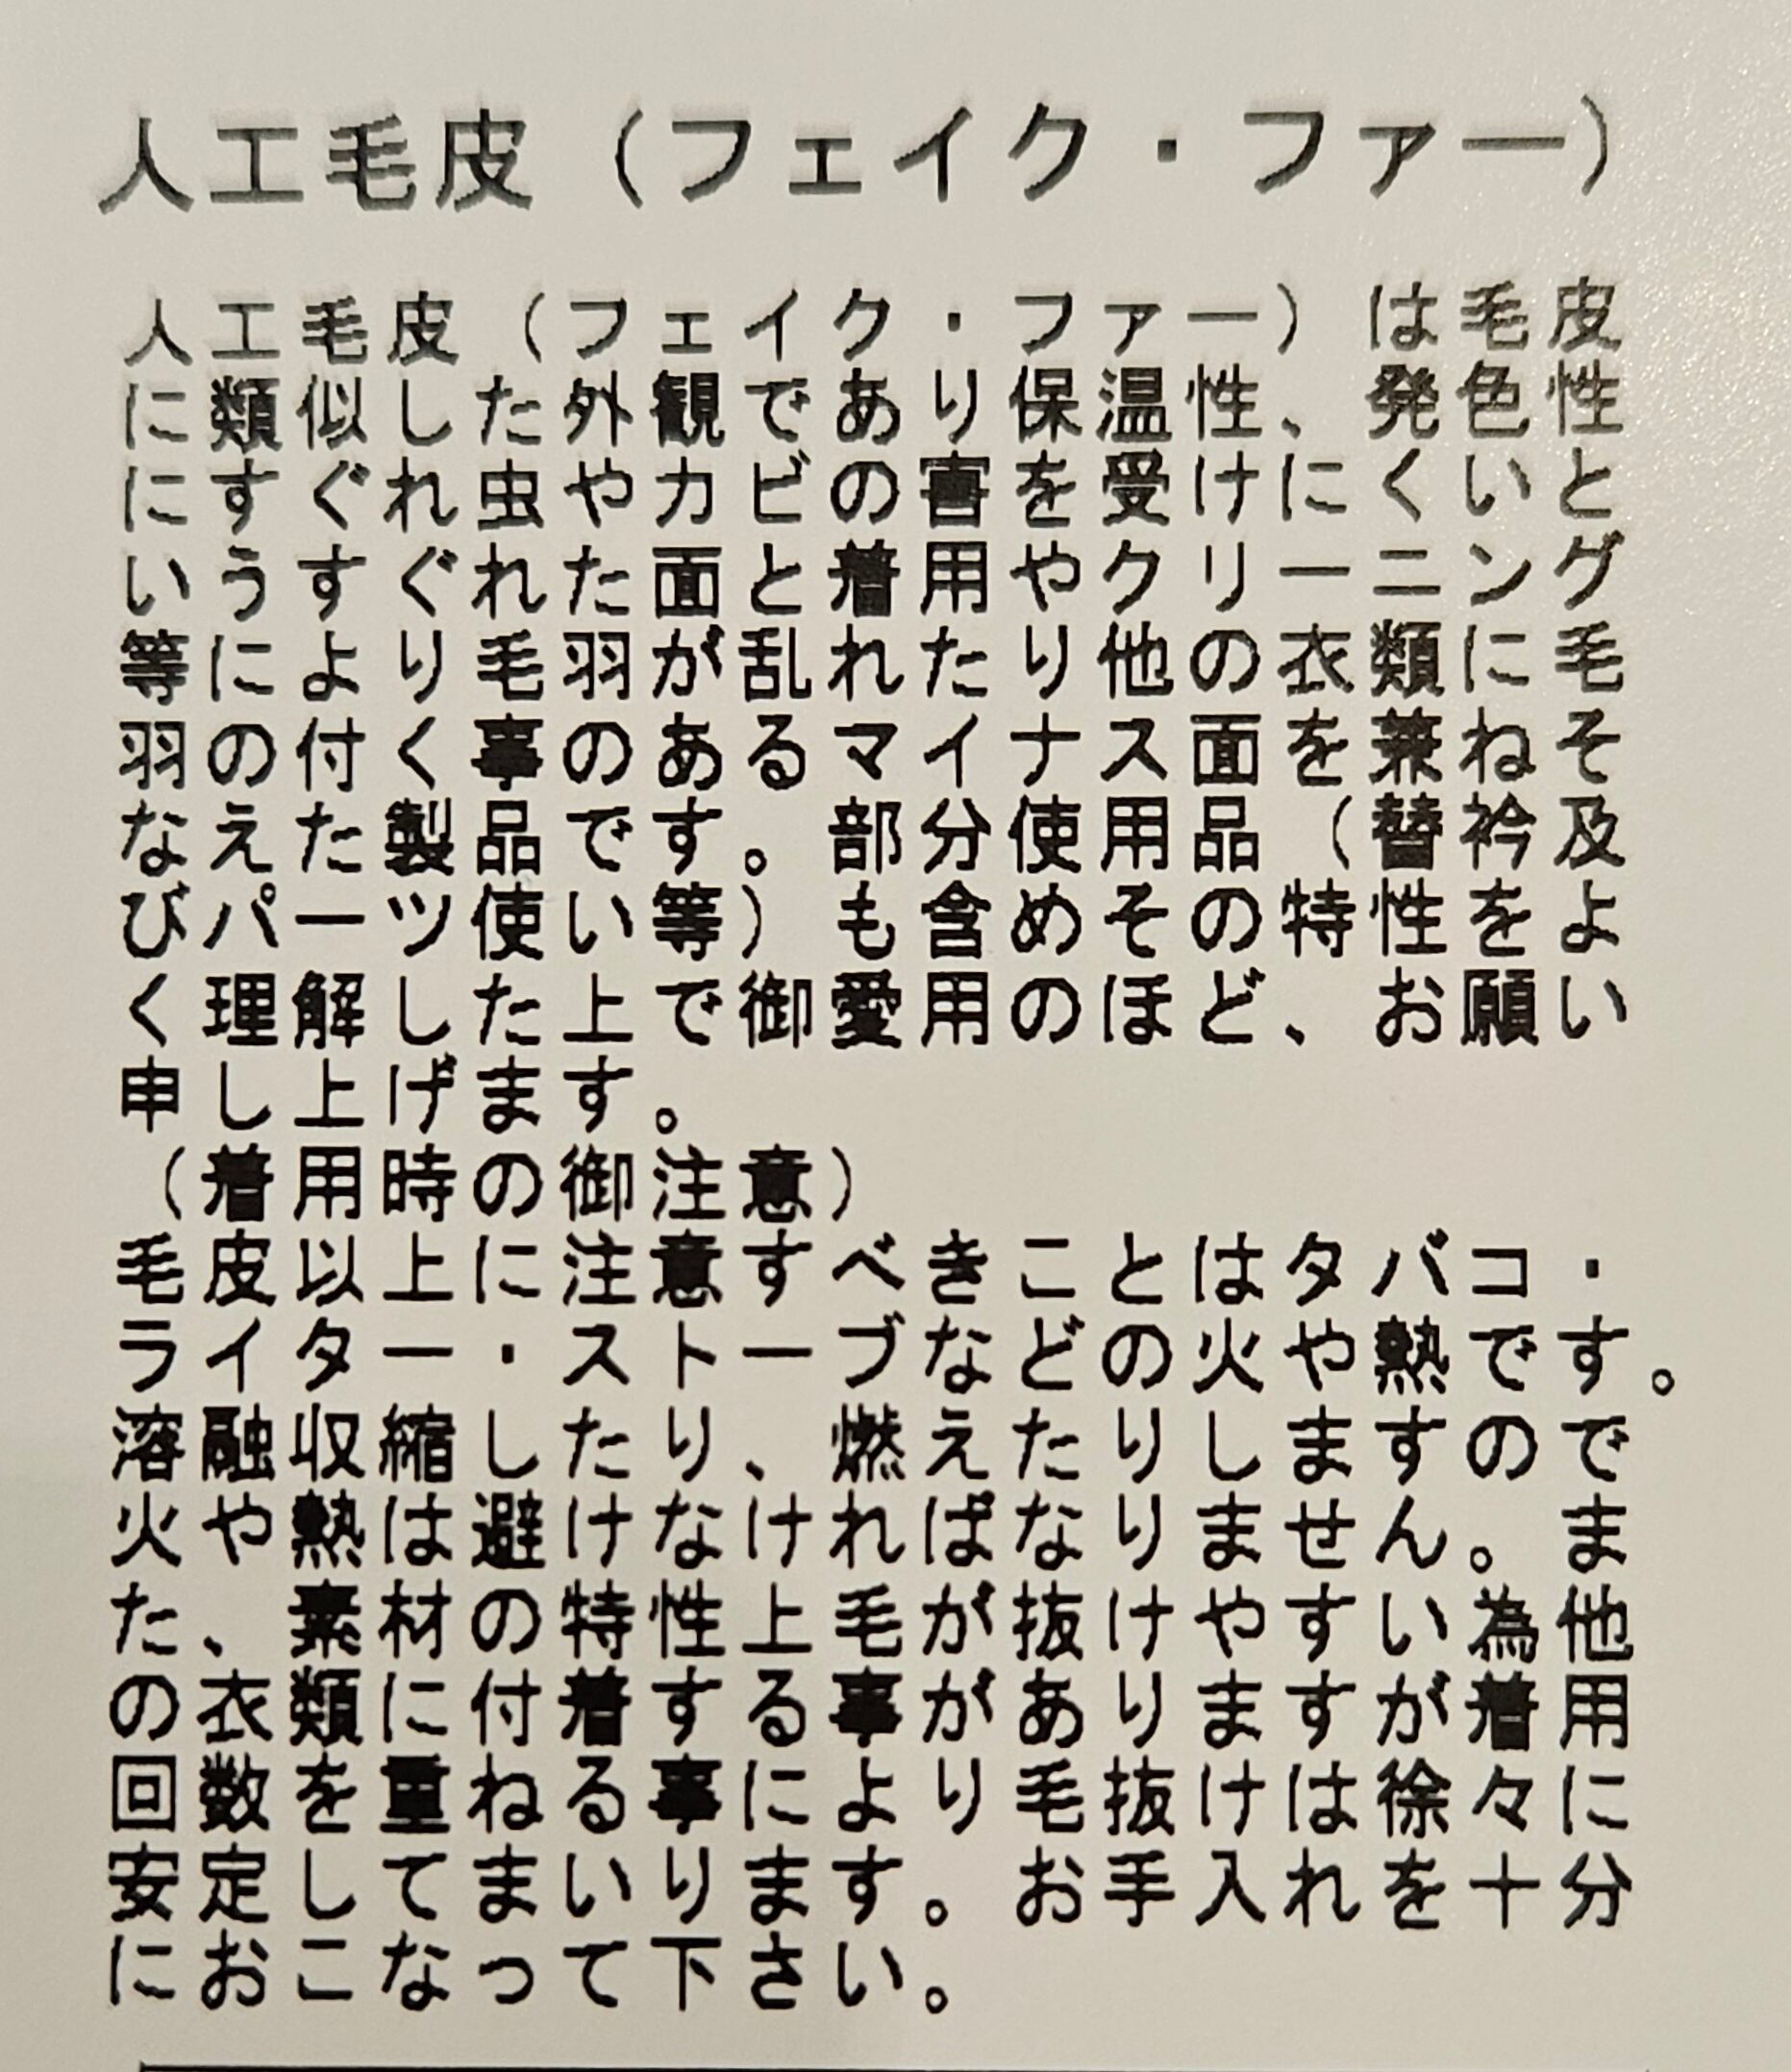 人工毛皮（フェイク・ファー）
人工毛皮（フェイク・ファー）は毛皮
に類似した外観であり保温性、発色性
にすぐれ虫やカビの害を受けにくいと
いうすぐれた面と着用やクリーニング
等により毛羽が乱れたり他の衣類に毛
羽の付く事のあるマイナス面を兼ねそ
なえた製品です。部分使用品（替衿及
びパーツ使い等）も含めその特性をよ
く理解した上で御愛用のほど、お願い
申し上げます。
（着用時の御注意）
毛皮以上に注意すべきことはタバコ・
ライター・ストーブなどの火や熱です。
溶融収縮したり、燃えたりしますので
火や熱は避けなければなりません。ま
た、素材の特性上毛が抜けやすい為他
の衣類に付着する事がありますが着用
回数を重ねる事により毛抜けは徐々に
安定してまいります。お手入れを十分
におこなって下さい。